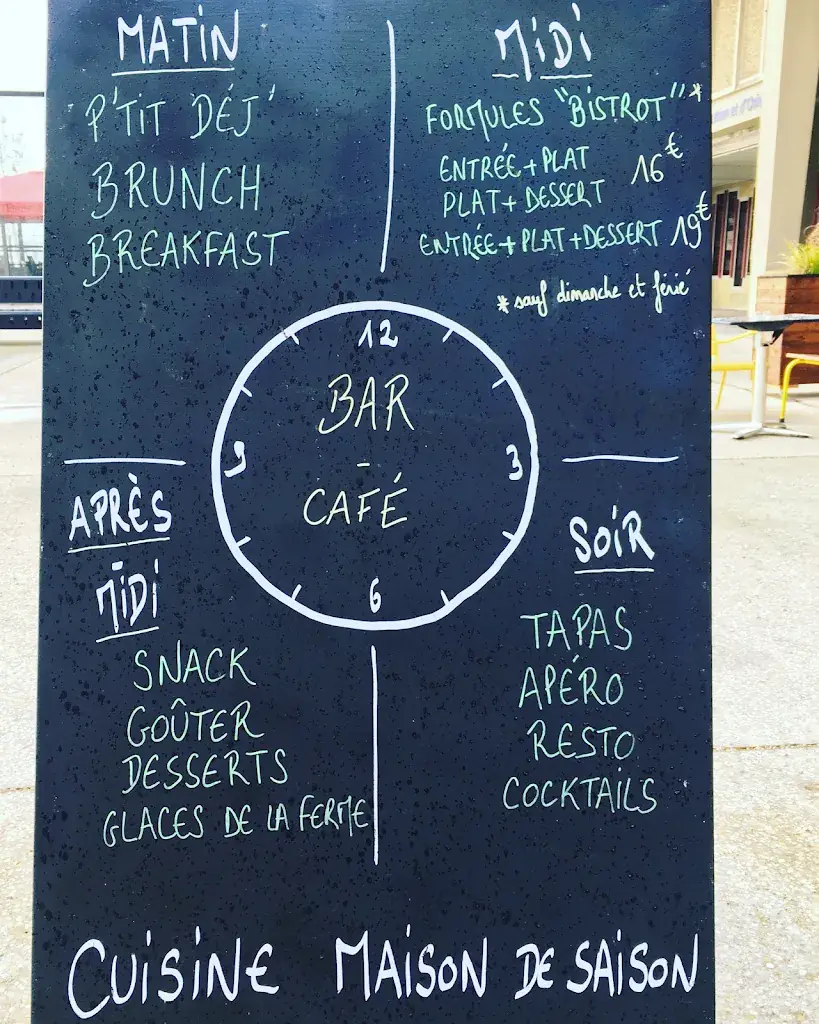 MATIN
P'TIT DÉJ'
BRUNCH
BREAKFAST
MIDI
FORMULES "BISTROT"*
ENTRÉE + PLAT
PLAT + DESSERT 16€
ENTRÉE + PLAT + DESSERT 19€
* sauf dimanche et férié
12
BAR
-
CAFÉ
9
3
6
APRÈS
-
MIDI
SNACK
GOÛTER
DESSERTS
GLACES DE LA FERME
SOIR
TAPAS
APÉRO
RESTO
COCKTAILS
CUISINE MAISON DE SAISON